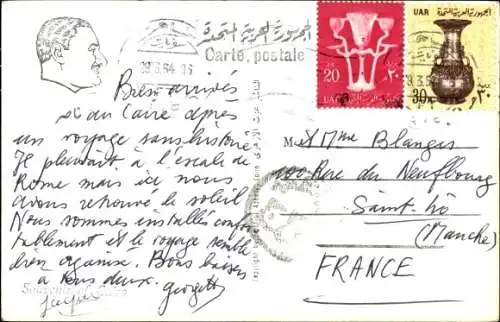 الجمهورية العربية المتحدة
Carte postale
29.3.64
UAR
20
UAR
30
Bien arrivés
au Caire après
un voyage sans histoire
Il pleuvait à l'escale de
Rome mais ici nous
avons retrouvé le soleil
Nous sommes installés confor
tablement et le voyage semble
bien organisé. Bons baisers
à tous deux. Georgette
M et Mme Blangas
100 Rue du Neufbourg
Saint-Lô
(Manche)
FRANCE